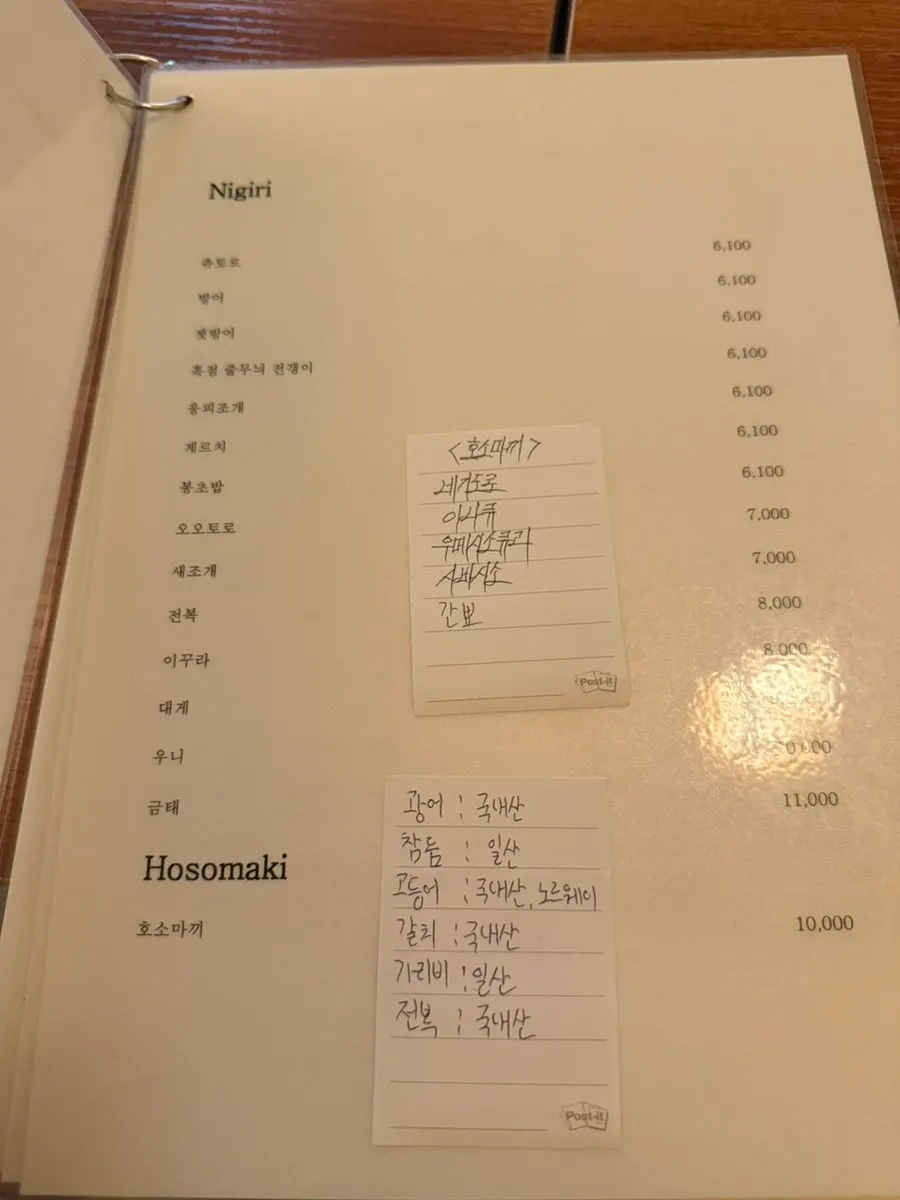 Nigiri
츄토로 6,100
방어 6,100
잿방어 6,100
흑점 줄무늬 전갱이 6,100
웅피조개 6,100
게르치 6,100
봉초밥 6,100
오오토로 7,000
새조개 7,000
전복 8,000
이꾸라 8,000
대게
우니
금태 11,000
Hosomaki
호소마끼 10,000
<호소마끼>
네기도로
아나큐
우메시소큐리
사바시소
간뾰
Post-it
광어 : 국내산
참돔 : 일산
고등어 : 국내산, 노르웨이
갈치 : 국내산
가리비 : 일산
전복 : 국내산
Post-it